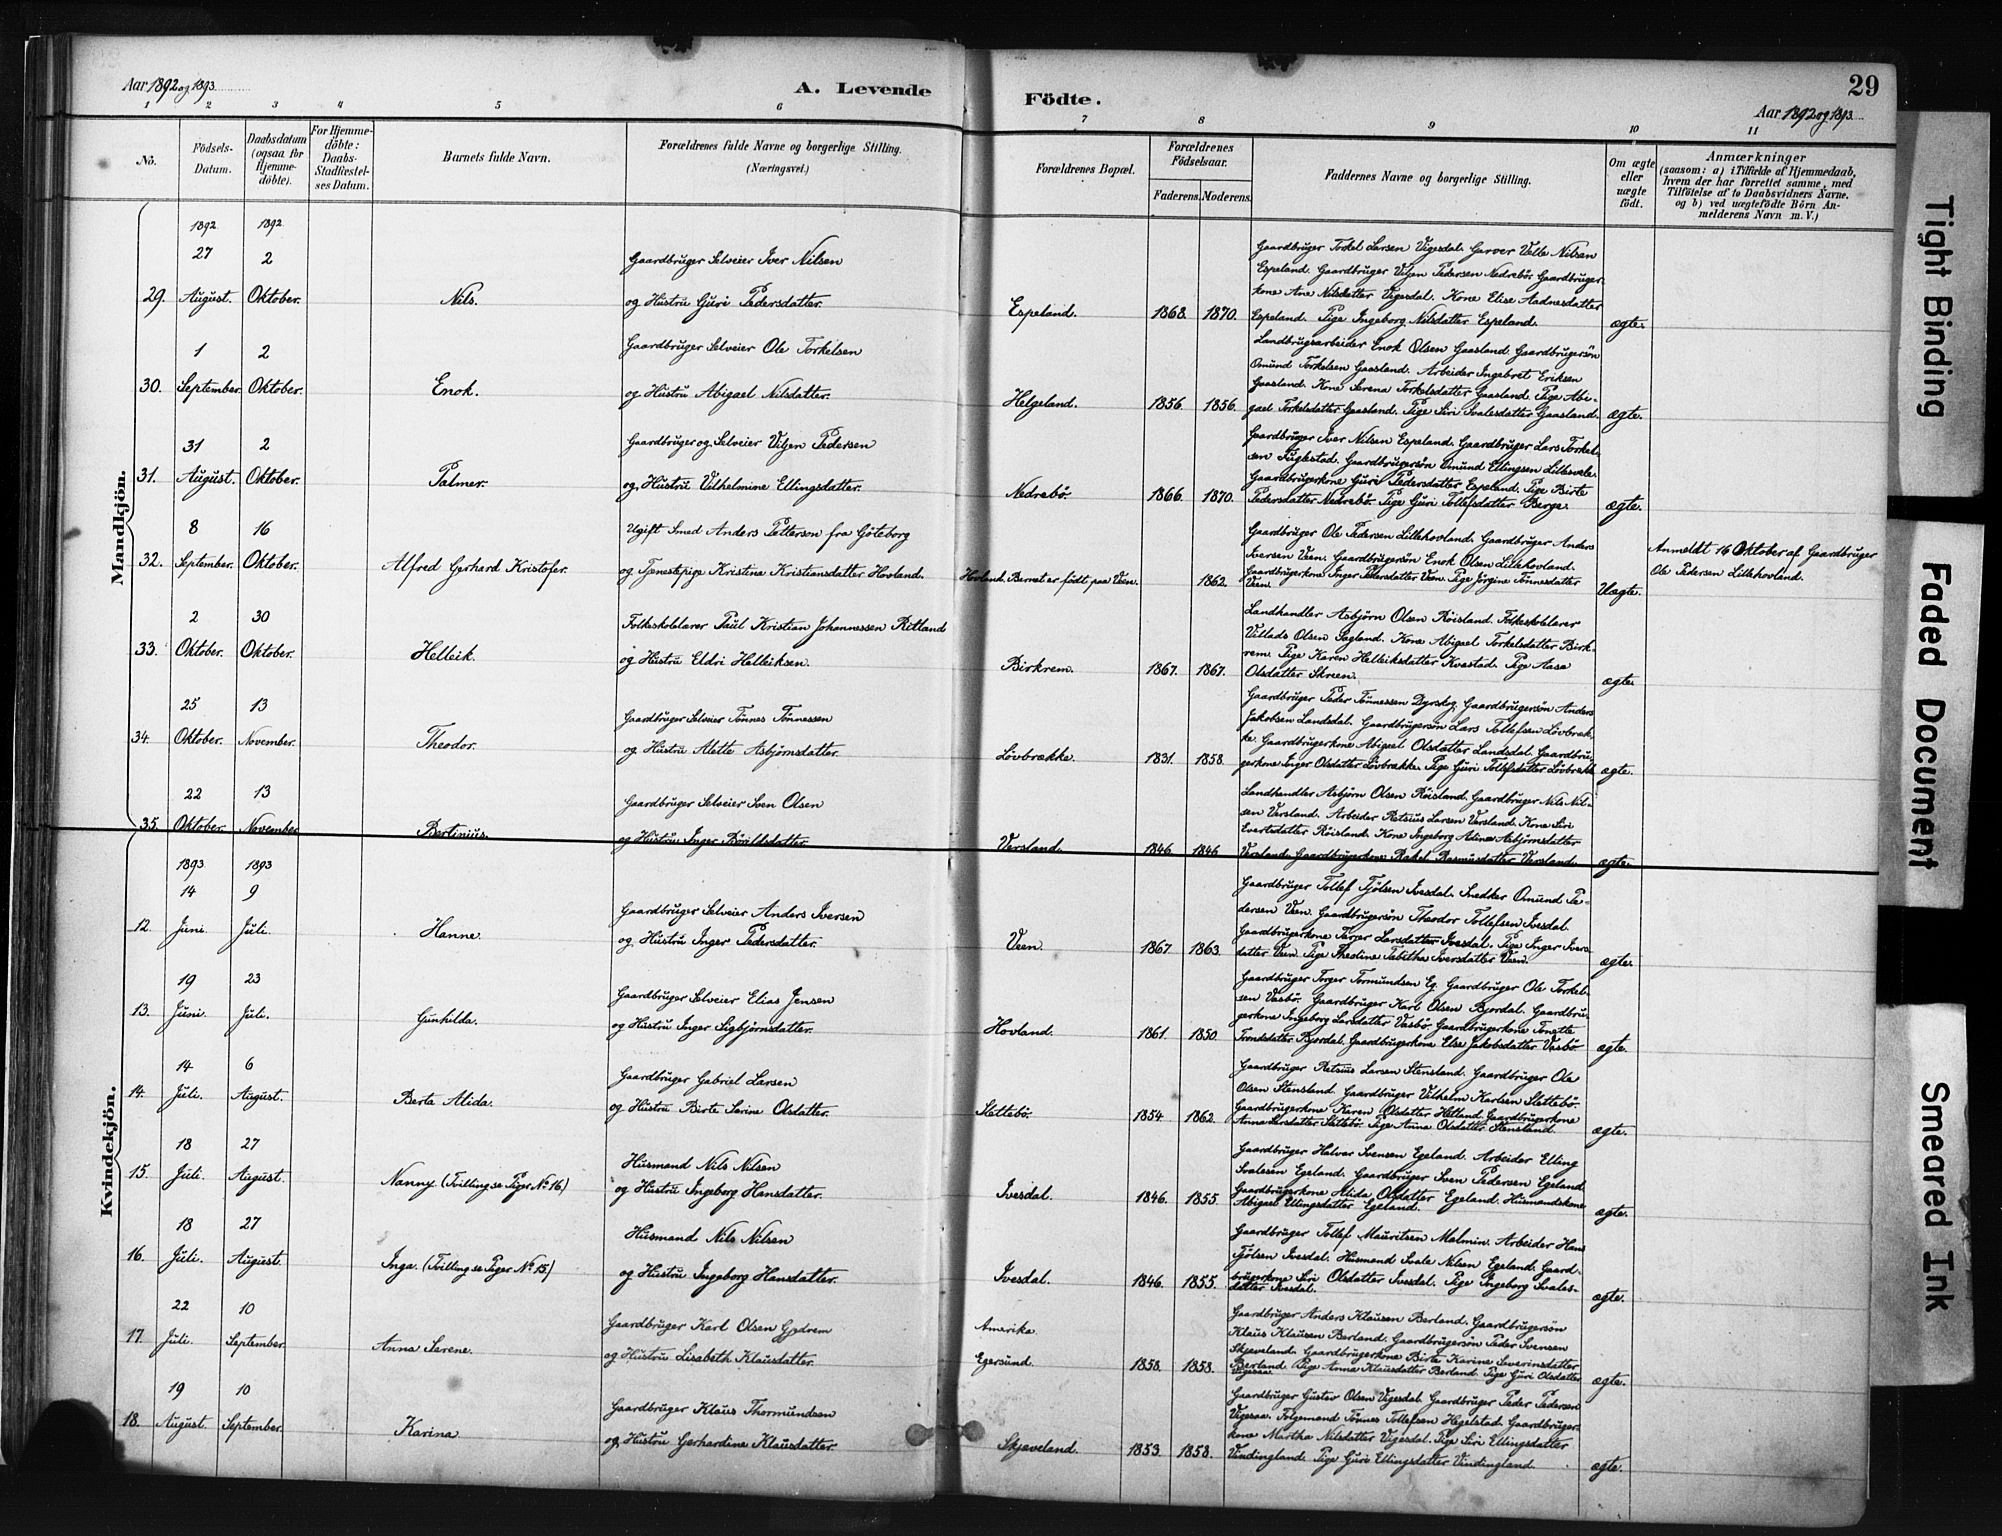 Aar 1892 og 1893
A. Levende
Födte.
29
Aar 1892 og 1893
1 2 3 4 5 6 7 8 9 10 11
No.
Födsels-
Datum.
Daabsdatum
(ogsaa for
Hjemme-
döbte).
For Hjemme-
döbte:
Daabs-
Stadfæstel-
ses Datum.
Barnets fulde Navn.
Forældrenes fulde Navne og borgerlige Stilling.
(Næringsvei.)
Forældrenes Bopæl.
Forældrenes
Födselsaar.
Faderens. Moderens.
Faddernes Navne og borgerlige Stilling.
Om ægte
eller
uægte
födt.
Anmærkninger
(saasom: a) i Tilfælde af Hjemmedaab,
hvem der har forrettet samme, med
Tilföielse af to Daabsvidners Navne.
og b) ved uægtefödte Börn An-
melderens Navn m. V.)
Mandkjön.
1892 1892
27 2
29. August. Oktober. Nils.
Gaardbruger Selveier Iver Nilsen
og Hustru Guri Pedersdatter.
Espeland. 1868. 1870.
Gaardbruger Torkel Larsen Vigesdal. Garver Valle Nilsen
Espeland. Gaardbruger Viljen Pedersen Nedrebø. Gaardbruger-
kone Ane Nilsdatter Vigesdal. Kone Elise Aadnesdatter
Espeland. Pige Ingeborg Nilsdatter Espeland.
ægte.
1 2
30. September. Oktober. Enok.
Gaardbruger Selveier Ole Torkelsen
og Hustru Abigael Nilsdatter.
Helgeland. 1856. 1856.
Landbrugsarbeider Enok Olsen Gaasland. Gaardbrugersön
Omund Torkelsen Gaasland. Arbeider Ingebret Eriksen
Gaasland. Kone Serena Torkelsdatter Gaasland. Pige Abi-
gael Torkelsdatter Gaasland. Pige Siri Svalesdatter Gaasland.
ægte.
31 2
31. August. Oktober. Palmer.
Gaardbruger og Selveier Viljen Pedersen
og Hustru Vilhelmine Ellingsdatter.
Nedrebö. 1866. 1870.
Gaardbruger Iver Nilsen Espeland. Gaardbruger Lars Torkel-
sen Fuglestad. Gaardbrugersön Omund Ellingsen
Gaardbrugerkone Guri Pedersdatter Espeland. Pige Birte
Pedersdatter Nedrebö. Pige Guri Tollefsdatter Berge.
ægte.
8 16
32. September. Oktober. Alfred Gerhard Kristofer.
Ugift Smed Anders Petterson fra Göteborg
og Tjenestepige Kristina Kristiansdatter Hovland.
Hovland. Barnet er født paa Veen. 1862.
Gaardbruger Ole Pedersen Lillehovland. Gaardbruger Anders
Iversen Veen. Gaardbrugersön Enok Olsen Lillehovland.
Gaardbrugerkone Inger Pedersdatter Veen. Pige Jörgine Tönnesdatter
Veen.
Uægte.
Anmeldt 16 Oktober af Gaardbruger
Ole Pedersen Lillehovland.
2 30
33. Oktober. Oktober. Helleik.
Folkeskolelærer Paul Kristian Johannessen Ritland
og Hustru Eldri Helleiksen.
Birkrem. 1867. 1867.
Landhandler Asbjørn Olsen Røisland. Folkeskolelærer
Villads Olsen Sagland. Kone Abigael Torkelsdatter Birk-
rem. Pige Karen Helleiksdatter Kvæstad. Pige Aasa
Olsdatter Skreen.
ægte.
25 13
34. Oktober. November. Theodor.
Gaardbruger Selveier Tönnes Tönnessen
og Hustru Alette Asbjørnsdatter.
Lövbrække. 1831. 1858.
Gaardbruger Peder Tönnessen Dyrskog. Gaardbrugersön Anders
Jakobsen Landsdal. Gaardbrugersön Lars Tollefsen Lövbræk-
ke. Gaardbrugerkone Abigael Olsdatter Landsdal. Gaardbru-
gerkone Inger Olsdatter Lövbrække. Pige Guri Tollefsdatter Lövbrække
ægte.
22 13
35. Oktober. November. Bertinius.
Gaardbruger Selveier Sven Olsen
og Hustru Inger Böraldsdatter.
Versland. 1846. 1846.
Landhandler Asbjørn Olsen Røisland. Gaardbruger Nils Nil-
sen Versland. Arbeider Retsius Larsen Versland. Kone Siri
Evertsdatter Røisland. Kone Ingeborg Adine Asbjørnsdatter
Versland. Gaardbrugerkone Rakel Rasmusdatter Versland.
ægte.
Kvindekjön.
1893 1893
14 9
12. Juni. Juli. Hanne.
Gaardbruger Selveier Anders Iversen
og Hustru Inger Pedersdatter.
Veen. 1867. 1863.
Gaardbruger Tollef Tjölsen Ivesdal. Snedker Omund Pe-
dersen Veen. Gaardbrugersön Theodor Tollefsen Ivesdal.
Gaardbrugerkone Larsdatter Ivesdal. Pige Inger Ivers-
datter Veen. Pige Theoline Tabitha Iversdatter Veen.
ægte.
19 23
13. Juni. Juli. Gunhilda.
Gaardbruger Selveier Elias Jensen
og Hustru Inger Sigbjörnsdatter.
Hovland. 1861. 1850.
Gaardbruger Torger Tormundsen Eg. Gaardbruger Ole Torkel-
sen Vasbö. Gaardbruger Karl Olsen Bjordal. Gaardbru-
gerkone Ingeborg Larsdatter Vasbö. Gaardbrugerkone Tonette
Trondsdatter Bjordal. Gaardbrugerkone Else Jakobsdatter Vasbö.
ægte.
14 6
14. Juli. August. Berta Alida.
Gaardbruger Gabriel Larsen
og Hustru Birte Serine Olsdatter.
Slettebö. 1854 1862.
Gaardbruger Retsius Larsen Stensland. Gaardbruger Ole
Olsen Stensland. Gaardbruger Vilhelm Karlsen Slettebö.
Gaardbrugerkone Karen Olsdatter Hetland. Gaardbrugerkone
Anna Larsdatter Slettebö. Pige Anna Olsdatter Stensland.
ægte.
18 27
15. Juli. August. Nanny (Tvilling se Piger No 16)
Husmand Nils Nilsen
og Hustru Ingeborg Hansdatter.
Ivesdal. 1846. 1855.
Gaardbruger Halvor Svensen Egeland. Arbeider Elling
Svalesen Egeland. Gaardbruger Sven Pedersen Egeland.
Gaardbrugerkone Alida Olsdatter Egeland. Husmandskone
Abigael Ellingsdatter Egeland.
ægte.
18 27
16. Juli. August. Inga. (Tvilling se Piger No 15.)
Husmand Nils Nilsen
og Hustru Ingeborg Hansdatter.
Ivesdal. 1846. 1855.
Gaardbruger Tollef Mauritsen Malmin. Arbeider Hans
Tjölsen Ivesdal. Husmand Svale Nilsen Egeland. Gaard-
brugerkone Siri Olsdatter Ivesdal. Pige Ingeborg Svales-
datter Ivesdal.
ægte.
22 10
17. Juli. September. Anna Serene.
Gaardbruger Karl Olsen Gjedrem
og Hustru Lisabeth Klausdatter.
Amerika
Egersund. 1858. 1858.
Gaardbruger Anders Klausen Berland. Gaardbrugersön
Klaus Klausen Berland. Gaardbrugersön Peder Svensen
Skjæveland. Gaardbrugerkone Birte Karine Severinsdatter
Berland. Pige Anna Klausdatter Berland. Pige Guri Olsdatter
Vigesaa.
ægte.
19 10
18. August. September. Karina
Gaardbruger Klaus Thormundsen
og Hustru Gerhardine Klausdatter.
Skjæveland. 1853. 1858.
Gaardbruger Gustav Olsen Vigesdal. Gaardbruger Peder Pedersen
Vigesaa. Folgemand Tönnes Tollefsen Hegelstad. Gaardbruger-
kone Martha Nilsdatter Vigesdal. Pige Siri Ellingsdatter
Vindingland. Pige Guri Ellingsdatter Vindingland.
ægte.
Tight Binding
Faded Document
Smeared Ink